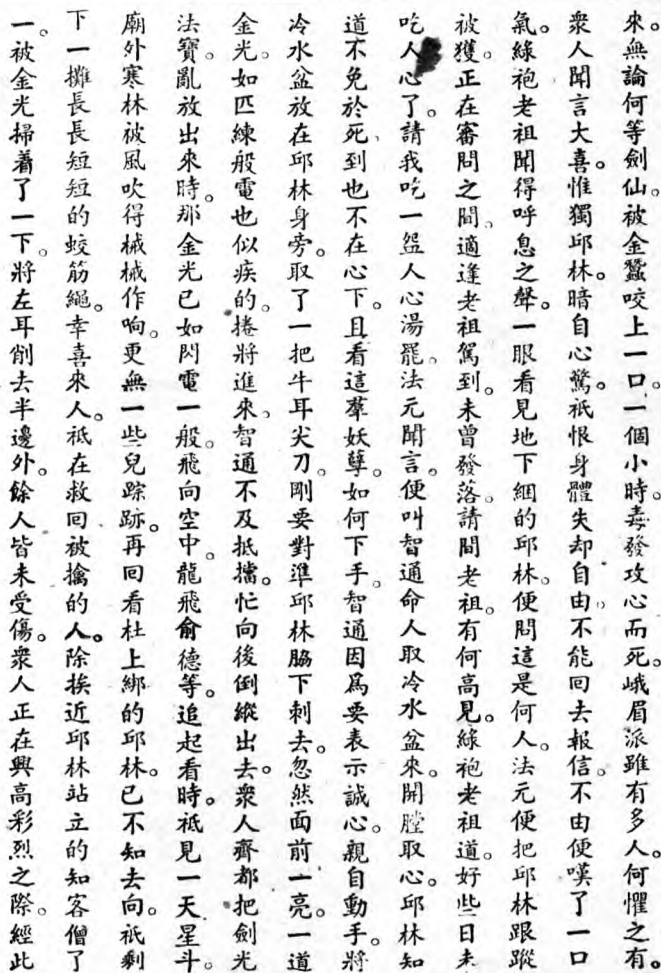 來。無論何等劍仙。被金蠶咬上一口。一個小時。毒發攻心而死。峨眉派雖有多人。何懼之有。
衆人聞言大喜。惟獨邱林。暗自心驚。祇恨身體失却自由。不能回去報信。不由便嘆了一口
氣。綠袍老祖聞得呼息之聲。一眼看見地下綑的邱林。便問這是何人。法元便把邱林跟蹤
被獲。正在審問之間。適逢老祖駕到。未曾發落。請問老祖。有何高見。綠袍老祖道。好些日未
吃人心了。請我吃一盌人心湯罷。法元聞言。便叫智通命人取冷水盆來。開膛取心。邱林知
道不免於死、到也不在心下。且看這羣妖孽。如何下手。智通因爲要表示誠心。親自動手。將
冷水盆放在邱林身旁。取了一把牛耳尖刀。剛要對準邱林脇下刺去。忽然面前一亮。一道
金光。如匹練般電也似疾的。捲將進來。智通不及抵擋。忙向後倒縱出去。衆人齊都把劍光
法寶。亂放出來時。那金光已如閃電一般。飛向空中。龍飛俞德等。追起看時。祇見一天星斗。
廟外寒林被風吹得槭槭作响。更無一些兒踪跡。再回看柱上綁的邱林。已不知去向。祇剩
下一攤長長短短的蛟筋繩。幸喜來人。祇在救回被擒的人。除挨近邱林站立的知客僧了
一。被金光掃着了一下。將左耳削去半邊外。餘人皆未受傷。衆人正在興高彩烈之際。經此